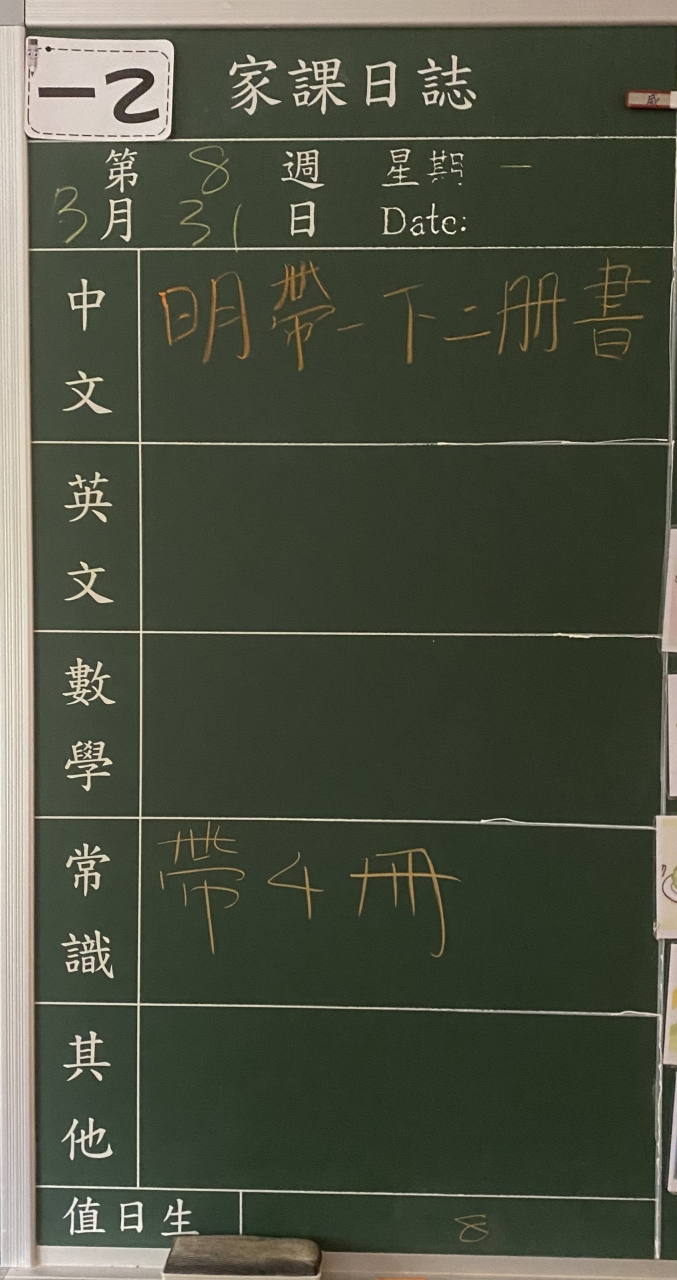 一乙
家課日誌
第 8 週 星期 一
3月 31 日 Date:
中文 明帶一下二册書
英文
數學
常識 帶4冊
其他
值日生 8